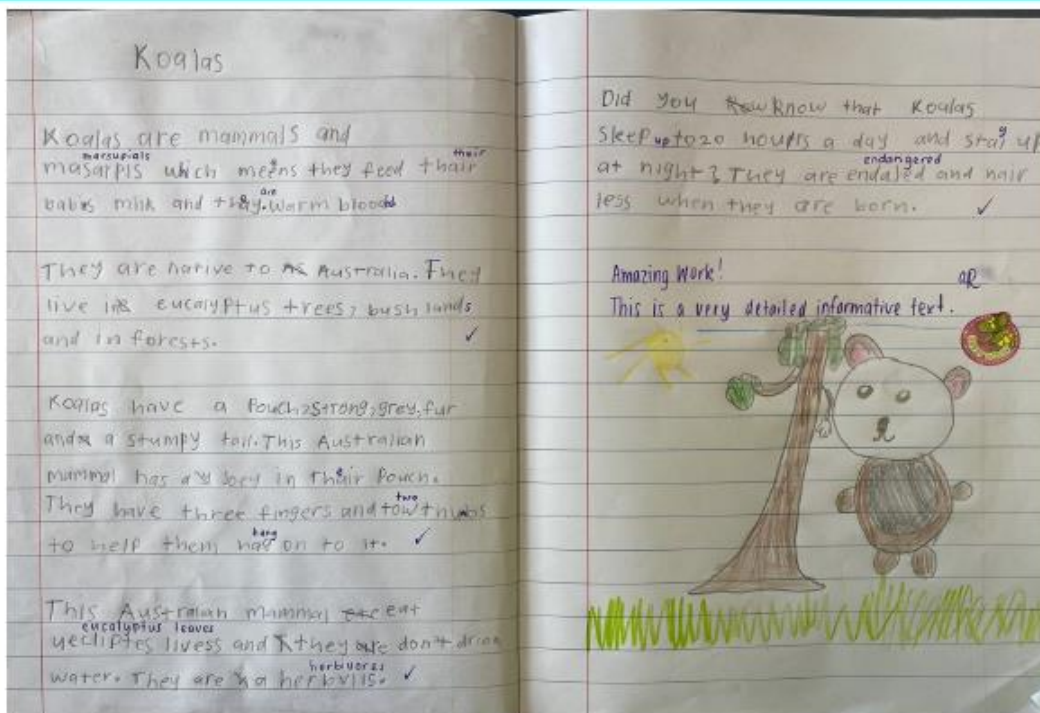 Koalas
Koalas are mammals and
marsupials their
masarpis which means they feed thair
are
babies milk and they warm blooded
They are native to Australia. They
live in eucalyptus trees, bush lands
and in forests.
Koalas have a Pouch, strong, grey, fur
and a stumpy tail. This Australian
mammal has a joey in Their Pouch.
two
They have three fingers and tow thumbs
hang
to help them hag on to it.
This Australian mammal eat
eucalyptus leaves
yecliptes livess and they don't drink
herbivores
water. They are a herbvils.
Did you Know that Koalas
Sleep up to 20 hours a day and stay up
endangered
at night? They are endaled and hair
less when they are born.
Amazing Work! aR
This is a very detailed informative text.